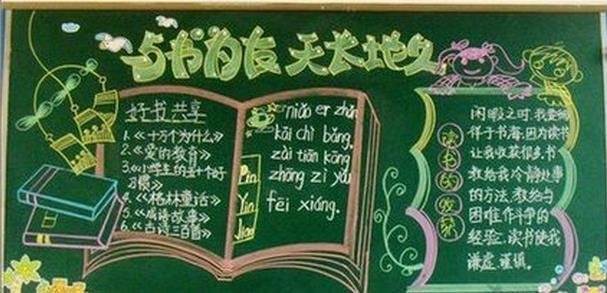 与书为友 天长地久
好书共享
1.《十万个为什么》
2.《爱的教育》
3.《小学生的五个好
习惯》
4.《格林童话》
5.《成语故事》
6.《古诗三百首》
Pin
Yin
Jiao
niǎo er zhǎn
kāi chì bǎng.
zài tiān kōng
zhōng zì yóu
fēi xiáng.
读书的收获
闲暇之时,我要
徉于书海,因为读书
让我收获很多,书
教给我冷静处事
的方法,教给与
困难作斗争的
经验,读书使我
谦虚、谨慎。